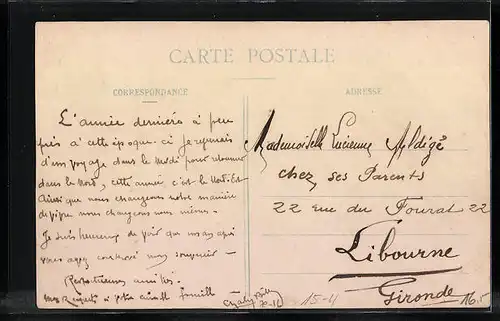 CARTE POSTALE
CORRESPONDANCE
ADRESSE
L'année dernière à peu
près à cette époque-ci je revenais
d'un voyage dans le Midi pour
dans le Nord, cette année c'est le Nord-Est
Ainsi que nous changeons notre manière
de nous changeons nous-mêmes.
Je suis heureux de voir que
vous avez conservé mon souvenir -
amitiés.
à votre famille
Mademoiselle Lucienne
chez ses Parents
22 rue du Fourat 22
Libourne
Gironde
15-4